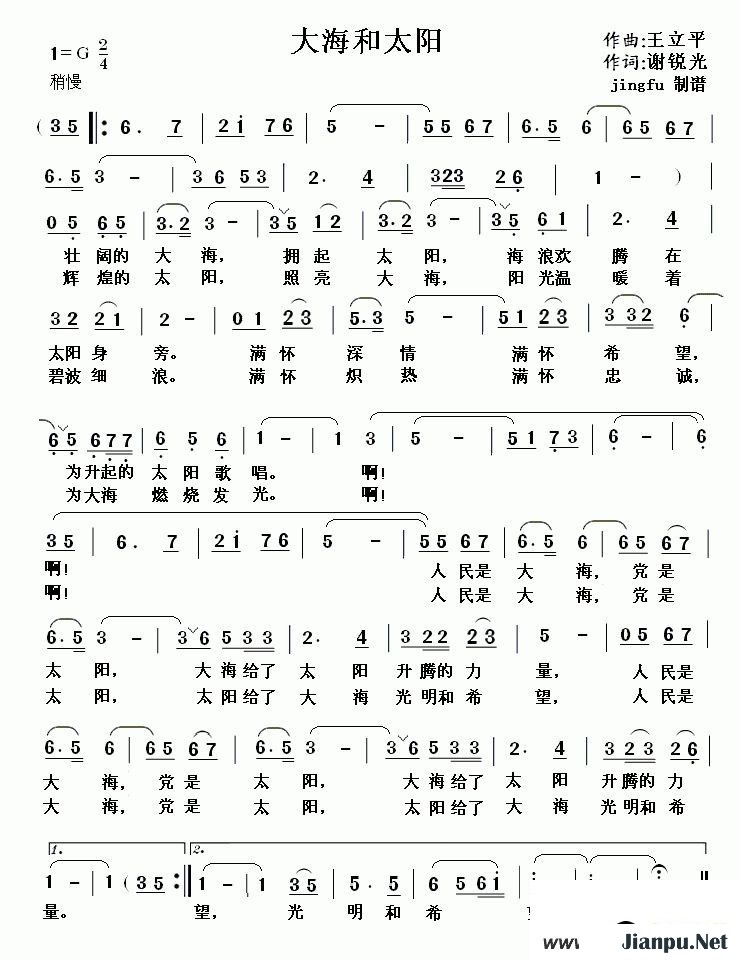 大海和太阳
1=G 2/4
稍慢
作曲:王立平
作词:谢锐光
jingfu 制谱
( 3 5 ‖: 6. 7 | 2 i 7 6 | 5 - | 5 5 6 7 | 6. 5 6 | 6 5 6 7 |
6. 5 3 - | 3 6 5 3 | 2. 4 | 3 2 3 2 6 | 1 - ) |
0 5 6 5 | 3. 2 3 - 3 5 1 2 | 3. 2 3 - 3 5 6 1 | 2. 4 |
壮 阔的 大 海, 拥 起 太 阳, 海 浪欢 腾 在
辉 煌的 太 阳, 照 亮 大 海, 阳 光温 暖 着
3 2 2 1 | 2 - | 0 1 2 3 | 5. 3 5 - | 5 1 2 3 | 3 3 2 6 |
太阳 身 旁。 满 怀 深 情 满 怀 希 望,
碧波 细 浪。 满 怀 炽 热 满 怀 忠 诚,
6 5 6 7 7 | 6 5 6 | 1 - | 1 3 | 5 - | 5 1 7 3 | 6 - 6
为升起的 太 阳 歌 唱。 啊!
为大海 燃 烧 发 光。 啊!
3 5 | 6. 7 | 2 i 7 6 | 5 - | 5 5 6 7 | 6. 5 6 | 6 5 6 7 |
啊! 人 民是 大 海, 党 是
啊! 人 民是 大 海, 党 是
6. 5 3 - | 3 6 5 3 3 | 2. 4 | 3 2 2 2 3 | 5 - | 0 5 6 7 |
太 阳, 大 海给了 太 阳 升 腾的 力 量, 人 民是
太 阳, 太 阳给了 大 海 光 明和 希 望, 人 民是
6. 5 6 | 6 5 6 7 | 6. 5 3 - | 3 6 5 3 3 | 2. 4 | 3 2 3 2 6 |
大 海, 党 是 太 阳, 大 海给了 太 阳 升 腾的 力
大 海, 党 是 太 阳, 太 阳给了 大 海 光 明和 希
1. 2.
1 - | 1 ( 3 5 :‖ 1 - | 1 3 5 | 5. 5 | 6 5 6 i
量。 望, 光 明 和 希
Jianpu.Net